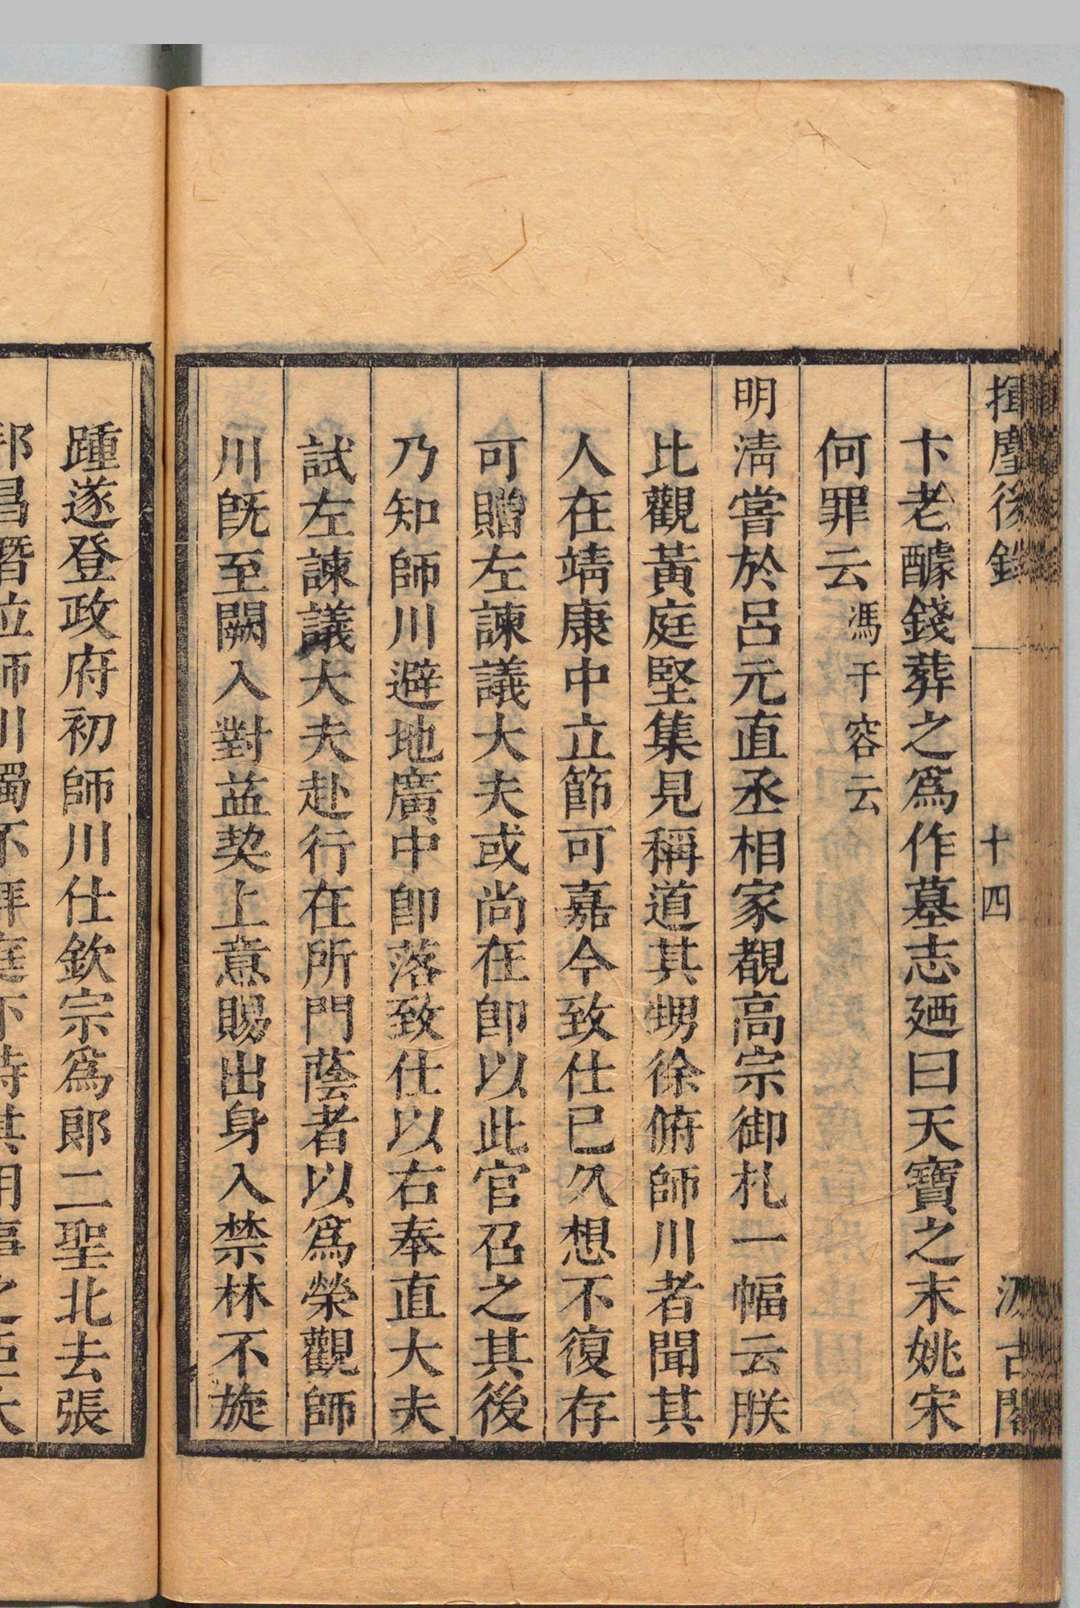 揮麈後錄
十四
汲古閣
卞老醵錢葬之爲作墓志廼曰天寶之末姚宋
何罪云馮于容云
明清嘗於呂元直丞相家覩高宗御札一幅云朕
比觀黃庭堅集見稱道其甥徐俯師川者聞其
人在靖康中立節可嘉今致仕已久想不復存
可贈左諫議大夫或尚在卽以此官召之其後
乃知師川避地廣中卽落致仕以右奉直大夫
試左諫議大夫赴行在所門蔭者以爲榮觀師
川旣至闕入對益契上意賜出身入禁林不旋
踵遂登政府初師川仕欽宗爲郞二聖北去張